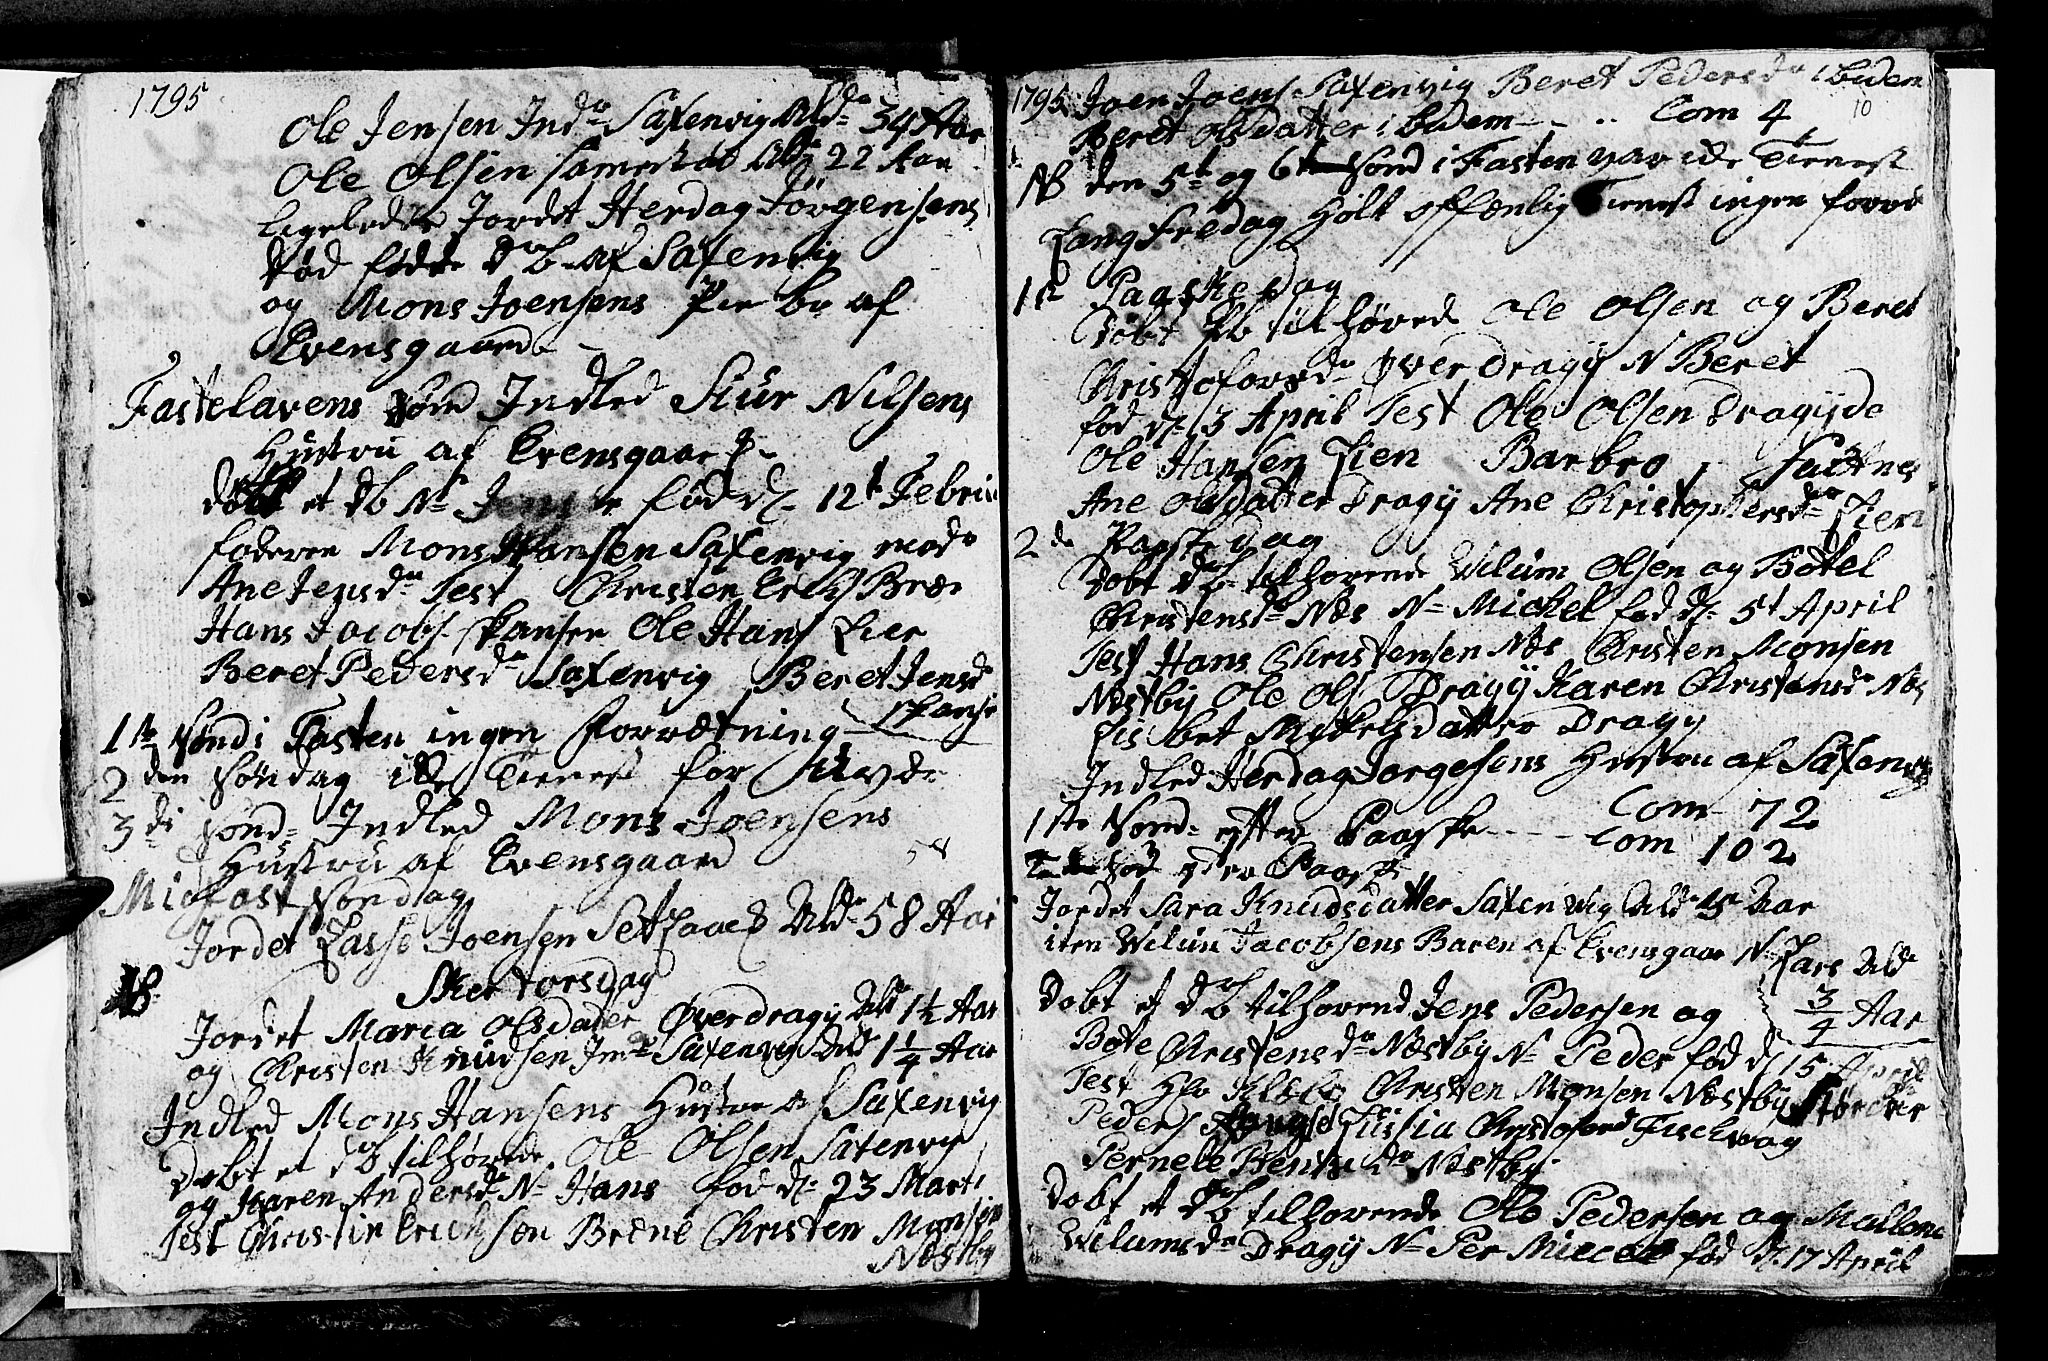 1795
Ole Jensen Indr Saxenvig Aldr 34 Aar
Ole Olsen samested Aldr 22 Aar
Ligeledes Jordet Herdag Jørgensens
død fødde db af Saxenvig
og Mons Joensens Pie br af
Evensgaard
Fastelavens Sønd Indled Siur Nilsens
Hustru af Evensgaard
døbt et db N. fød d. 12t Febrii
foderen Mons Hansen Saxenvig mode
Ane Jensdr Test Christen Erichs Bræ
Hans Jacobs Skansen Ole Hans Lier
Beret Pedersdr Saxenvig Beret Jensd
Skansen
1te Sønd i Fasten ingen Forrætning
2den Søndag icke Tienest for Uvær
3die Sønd Indled Mons Joensens
Hustru af Evensgaard 58
Midfast Søndag
Jordet Lasse Joensen Setsaae Aldr 58 Aar
NB. Skertorsdag
Jordet Maria Olsdater Øverdragy Ald 1 1/2 Aar
og Christen Knudsen Indr Saxenvig Ald 1 1/4 Aar
Indled Mons Hansens Hustru af Saxenvig
Døbt et db tilhørende Ole Olsen Saxenvig
og Karen Andersdr N. Hans fød d. 23 Marti
Test Christen Erichsen Bræne Christen Monsen
Næstby
1795 Joen Joens Saxenvig Beret Pedersdr ibidem
10
Beret Olsdatter ibidem Com 4
NB den 5t og 6te Sønd i Fasten var icke Tienest
Lang Fredag Holt offenlig Tienest ingen forre
1te Paaskedag
Døbt db tilhørende Ole Olsen og Beret
Christoforsdr Øverdragy N Beret
fød d. 13 April Test Ole Olsen Dragy de
Ole Hansen Lien Barbro Saltnes
Ane Olsdatter Dragy Ane Christophersdr Lien
2de Paaskedag
Døbt db tilhørende Wilum Olsen og Botel
Christensdr Næs N. Michel fød d. 5t April
Test Hans Christensen Næs Christen Monsen
Næstby Ole Ols Dragy Karen Christensdr Næs
Lisbet Mickelsdatter Dragy
Indled Herdag Jorgesens Hustru af Saxenvig
1ste Sønd efter Paaske Com 72
2den Sød efter Paaske Com 102
Jordet Sara Knudsdatter Saxenvig Ald 15 Aar
iten Wilum Jacobsens Baren af Evensgaar N. Lars Ald
3/4 Aar
Døbt et db tilhørend Jens Pedersen og
Bote Christensdr Næstby N. Peder fød d 15 April
Test Hr Klæbo Christen Monsen Næstby Størcker
Peders Lissia Christofersd Fiskvaag
Pernele Bentsdr Næstby
Døbt et db tilhørende Ole Pedersen og Mallene
Wilumsdr Dragy N. Per Miccel fød d. 17 April